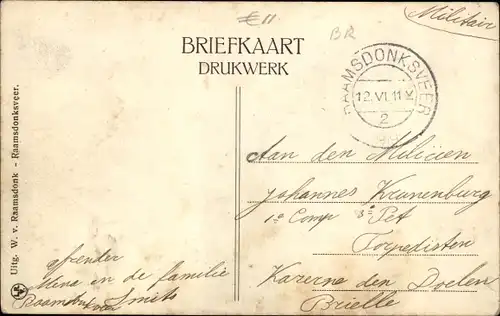 €11
BR
Militair
BRIEFKAART
DRUKWERK
RAAMSDONKSVEER
12.VI.11
2
Aan den Milicien
Johannes Kranenburg
1e Comp 3e Pet
Torpedisten
Kazerne den Doelen
Brielle
afzender
en de familie
Smits
Uitg. W. v. Raamsdonk - Raamsdonksveer.